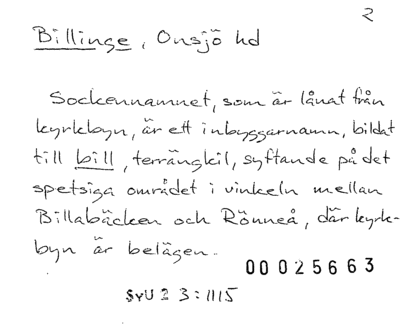 2
Billinge, Onsjö hd
Sockennamnet, som är lånat från
kyrkbyn, är ett inbyggarnamn, bildat
till bill, terrängkil, syftande på det
spetsiga området i vinkeln mellan
Billabäcken och Rönneå, där kyrk-
byn är belägen.
00025663
SvU 23:1115